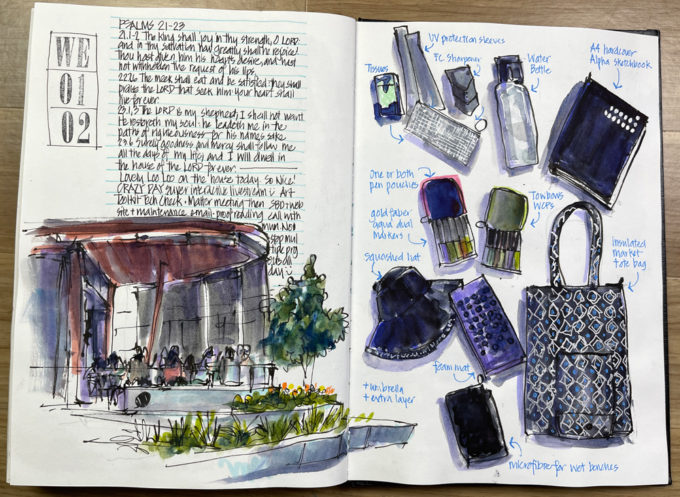 WE
01
02
PSALMS 21-23
21.1-2 The king shall joy in thy strength, O LORD
and in thy salvation how greatly shall he rejoice!
Thou hast given him his heart's desire, and hast
not withholden the request of his lips.
22.26 The meek shall eat and be satisfied: they shall
praise the LORD that seek him: your heart shall
live for ever.
23.1,3 The LORD is my shepherd; I shall not want.
He restoreth my soul: he leadeth me in the
paths of righteousness for his names sake
23.6 Surely goodness and mercy shall follow me
all the days of my life; and I will dwell in
the house of the LORD for ever.
Lovely Loo Loo on the house today. So Nice!
CRAZY DAY super interactive livestream :) Art
Toolkit Tech Check. Matter meeting then SBD + web
site + maintenance email proofreading call with
day :)
UV protection sleeves
Tissues
FC sharpener
Water
Bottle
A4 hardcover
Alpha sketchbook
One or both
pen pouches
gold faber
aqua dual
markers
Tombows
WCPs
squashed hat
Insulated
market
tote bag
foam mat
+ umbrella
+ extra layer
microfibre for wet benches